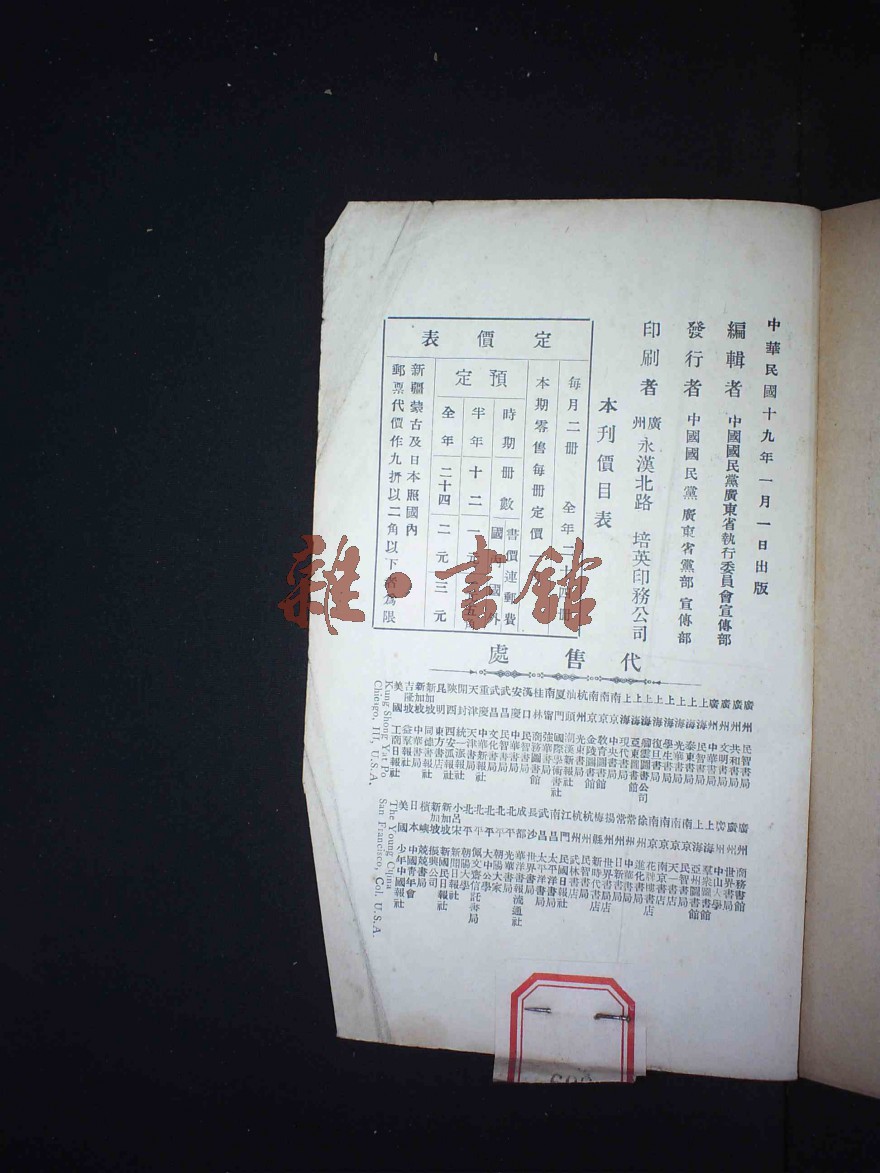 中華民國十九年一月一日出版
編輯者 中國國民黨廣東省執行委員會宣傳部
發行者 中國國民黨廣東省黨部宣傳部
印刷者 廣州 永漢北路 培英印務公司
本刊價目表
定價表
每月二册 全年二十四册
本期零售每册定價一
預定
時期 册數 書價連郵費
國內 國外
半年 十二 一元
全年 二十四 二元 三元
新疆蒙古及日本照國內
郵票代價作九折以二角以下者為限
代售處
廣州 民智書局
廣州 共和書局
廣州 文明書局
上海 中華書局
上海 民智書局
上海 泰東書局
上海 光華書局
上海 學生書局
上海 復旦書局
上海 現代書局
南京 中央書局
南京 教育圖書館
南京 金陵圖書館
杭州 光東書局
廈門 國際學術書社
桂林 強華書局
漢口 商務圖書館
安慶 民智書局
武昌 中華書局
武昌 文化書局
重慶 中華新報社
天津 天津書局
開封 統一派報社
陝西 西安派報社
昆明 東方書店
新加坡 同德書店
新加坡 中華書局
吉隆坡 益羣報社
美國 工商日報社
Kung Shong Yat Po
Chicago, Ill, U.S.A.
廣州 商務書館
廣州 世界書局
廣州 中山大學
上海 羣衆圖書館
上海 亞洲圖書館
南京 民智書局
南京 天一書店
南京 南京書店
南京 花牌樓書店
徐州 進化書局
常州 中華書局
常州 日新書局
揚州 世界書局
梅縣 新時代書店
杭州 民智書局
杭州 武林書店
江門 民國日報社
南昌 太平洋書局
武昌 太平洋書局
長沙 世界書局
成都 華洋書報流通社
北平 光華書局
北平 朝陽大家
北平 大中公學
北平 佩文齋信託書局
小呂宋 新聞日報社
新加坡 新國民日報社
檳嶼 振興公司
日本 中國青年會
美國 少年中國報社
The Young China
San Francisco, Col. U.S.A.
雜·書館